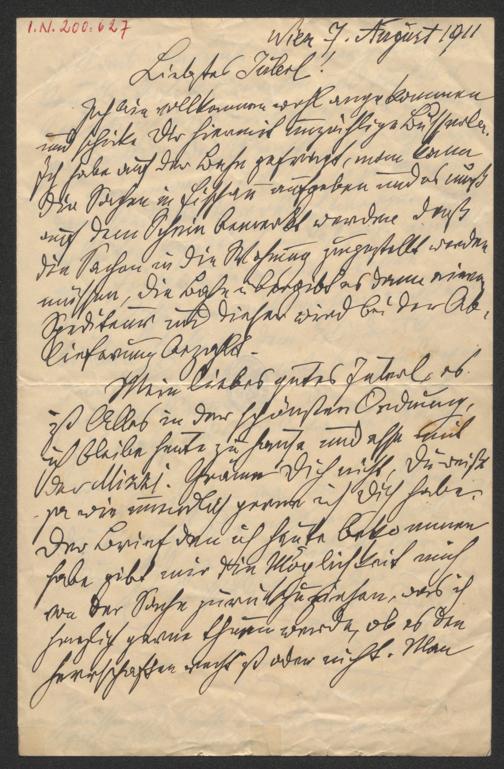 I.N. 200.627
Wien 7. August 1911
Liebstes Juterl!
Ich bin vollkommen wohl angekommen
und schicke Dir hiermit unzählige Busserln.
Ich habe auf der Bahn gefragt, man kann
die Sachen in Eichau aufgeben und es muß
auf dem Schein bemerkt werden daß
die Sachen in die Wohnung zugestellt werden
müssen, die Bahn übergibt es dann einem
Spediteur und dieser wird bei der Ab-
lieferung bezahlt.
Mein liebes gutes Juterl, es
ist Alles in der schönsten Ordnung,
ich bleibe heute zu Hause und esse mit
der Mizzi. Gräme Dich nicht, Du weißt
ja wie unendlich gerne ich Dich habe.
Der Brief den ich heute bekommen
habe gibt mir die Möglichkeit mich
von der Sache zurückzuziehen, was ich
herzlich gerne thuen werde, ob es den
Herrschaften recht ist oder nicht. Man